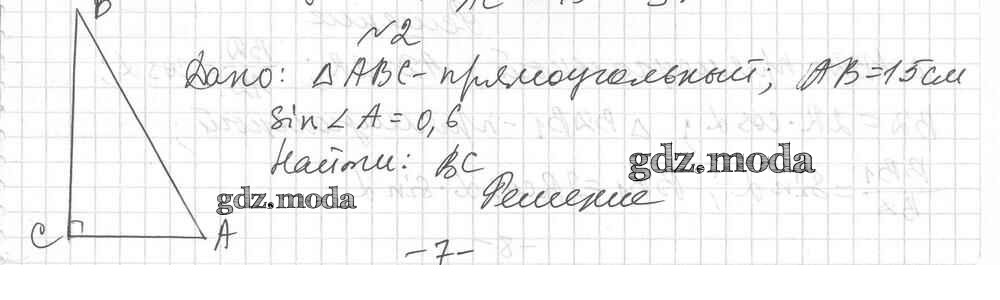 №2
Дано: △ABC - прямоугольный; AB=15см
sin∠A=0,6
Найти: BC
gdz.moda
gdz.moda
Решение
B
C
A
-7-